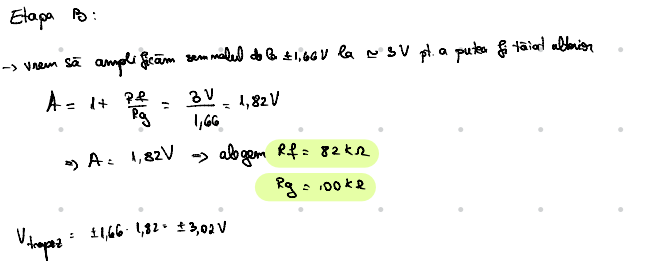 Etapa B:
→ vrem să amplificăm semnalul de la ±1,66V la ≃ 3V pt. a putea fi tăiat ulterior
A = 1 + Rf/Rg = 3V/1,66 = 1,82V
⇒ A = 1,82V ⇒ alegem Rf = 82kΩ
Rg = 100kΩ
Vtrapez = ±1,66 · 1,82 = ±3,02V